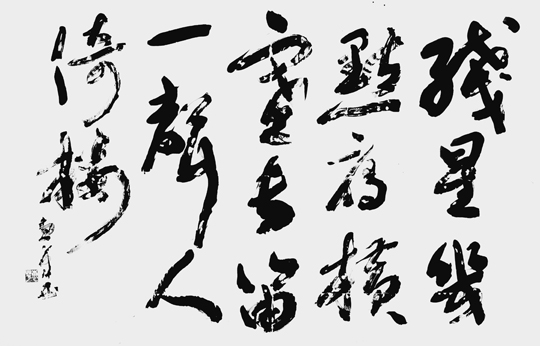 殘星幾
點雁橫
塞長笛
一聲人
倚樓